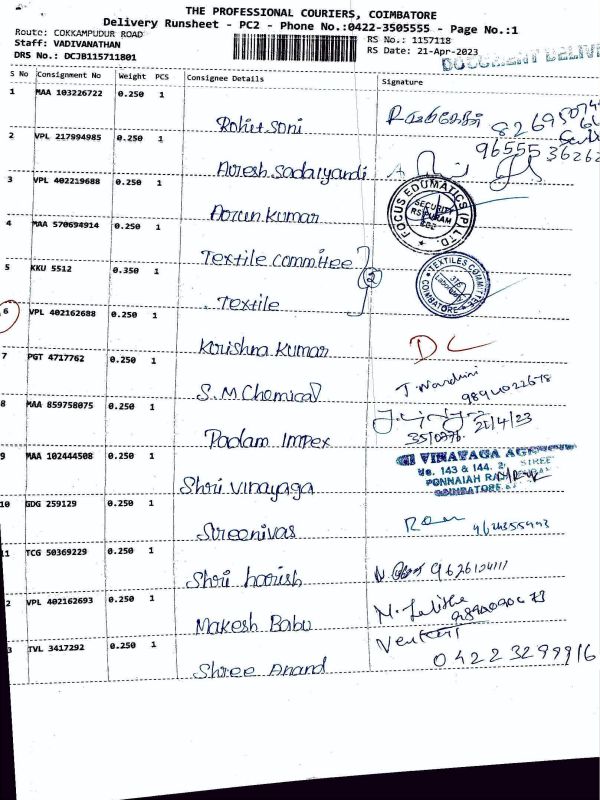 THE PROFESSIONAL COURIERS, COIMBATORE
Delivery Runsheet - PC2 - Phone No.:0422-3505555 - Page No.:1
Route: COKKAMPUDUR ROAD
RS No.: 1157118
Staff: VADIVANATHAN
RS Date: 21-Apr-2023
DRS No.: DCJB115711801
DOCUMENT DELIVE
S No Consignment No Weight PCS Consignee Details Signature
1 MAA 103226722 0.250 1
Rohit Soni
2 VPL 217994985 0.250 1
3 VPL 402219688 0.250 1
Arun kumar
FOCUS EDUMATICS (P) LTD. SECURITY RS PURAM CBE
4 MAA 570694914 0.250 1
Textile committee
2
5 KKU 5512 0.350 1
Textile
TEXTILES COMMITTEE COIMBATORE
6 VPL 402162688 0.250 1
Krishna Kumar
DC
7 PGT 4717762 0.250 1
S.M Chemical
J. Nandhini
8 MAA 859758075 0.250 1
Padam Impex
21/4/23
9 MAA 102444508 0.250 1
Shri Vinayaga
VINAYAGA AGENCI
No. 143 & 144, STREE
PONNAIAH
COIMBATORE
10 GDG 259129 0.250 1
Sreenivas
11 TCG 50369229 0.250 1
Shri harish
2 VPL 402162693 0.250 1
Makesh Babu
M. Lalitha
3 TVL 3417292 0.250 1
Shree Anand
0422 3299916